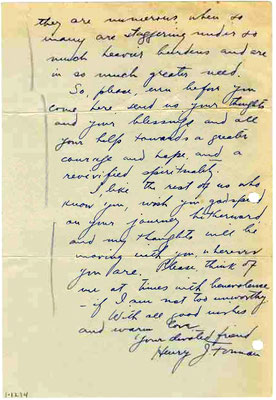 they are numerous, when so
many are staggering under so
much heavier burdens and are
in so much greater need.
So, please, even before you
come here, send us your thoughts
and your blessings and all
your help towards a greater
courage and hope, and a
revivified spirituality.
I like the rest of us who
know you, wish you godspeed
on your journey hitherward
and my thoughts will be
moving with you, wherever
you are. Please, think of
me at times with benevolence
- if I am not too unworthy.
With all good wishes
and warm love
Your devoted friend
Henry J Forman